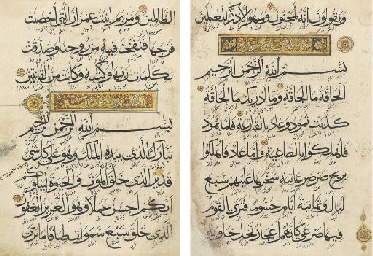 ويقولون انه لمجنون وما هو الا ذكر للعلمين
بسم الله الرحمن الرحيم
الحاقة ما الحاقة وما ادريك ما الحاقة
كذبت ثمود وعاد بالقارعة فاما ثمود
فاهلكوا بالطاغية واما عاد فاهلكوا
بريح صرصر عاتية سخرها عليهم سبع
ليال وثمانية ايام حسوما فترى القوم
فيها صرعى كانهم اعجاز نخل خاوية
الظالمين ومريم ابنت عمران التي احصنت
فرجها فنفخنا فيه من روحنا وصدقت
بكلمات ربها وكتبه وكانت من القانتين
بسم الله الرحمن الرحيم
تبارك الذي بيده الملك وهو على كل شي
قدير الذي خلق الموت والحيوة ليبلوكم
ايكم احسن عملا وهو العزيز الغفور
الذي خلق سبع سموات طباقا ما ترى